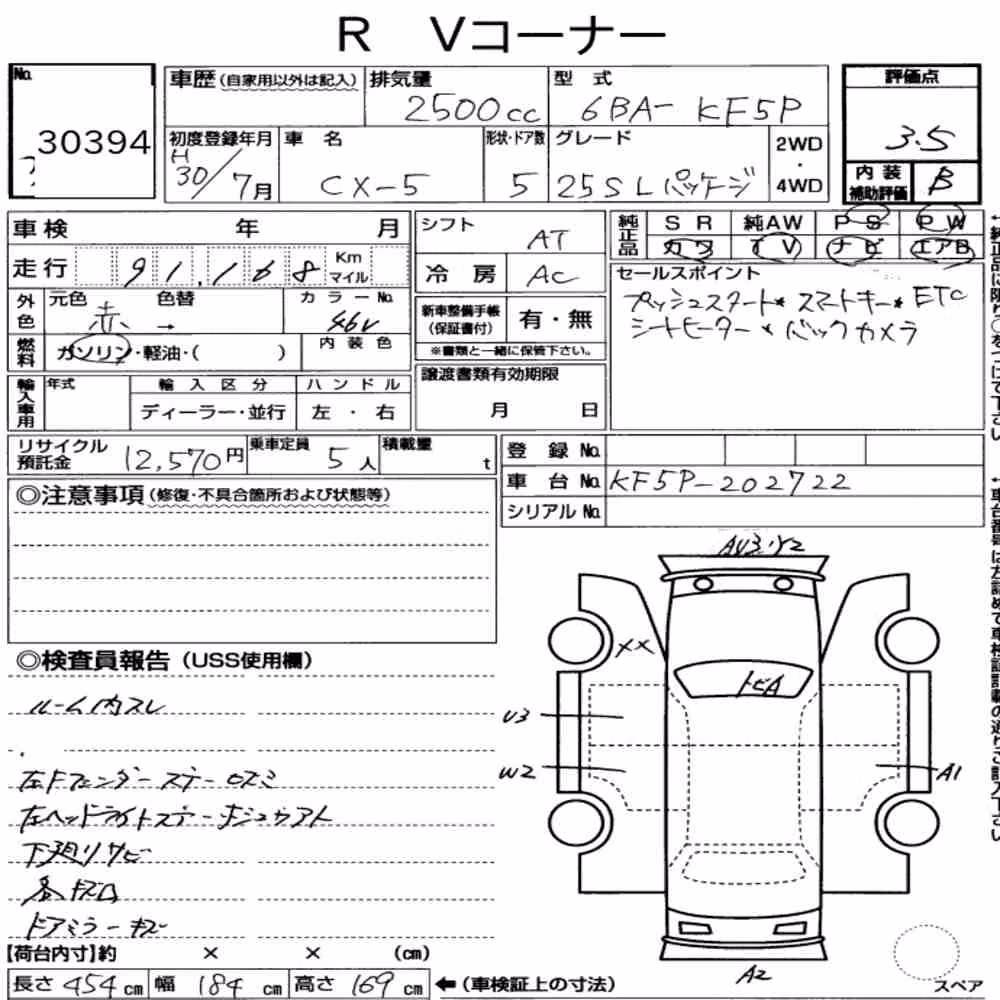 R Vコーナー
No. 30394
車歴(自家用以外は記入)
排気量 2500cc
型式 6BA- KF5P
評価点 3.5
初度登録年月 H 30/7月
車名 CX-5
形状・ドア数 5
グレード 25S Lパッケージ
2WD・4WD
内装補助評価 B
車検 年 月
走行 91,168 Km マイル
シフト AT
冷房 AC
純正品 SR 純AW PS PW
カワ TV ナビ エアB
セールスポイント
プッシュスタート* スマートキー* ETC
シートヒーター * バックカメラ
外色 元色 赤 → 色替
カラーNo. 46V
燃料 ガソリン・軽油・( )
内装色
新車整備手帳(保証書付) 有・無
※書類と一緒に保管下さい。
輸入車用 年式 輸入区分 ハンドル
ディーラー・並行 左・右
譲渡書類有効期限
月 日
リサイクル預託金 12,570円
乗車定員 5人
積載量 t
登録No.
車台No. KF5P-202722
シリアルNo.
◎注意事項(修復・不具合箇所および状態等)
◎検査員報告(USS使用欄)
ルーム内スレ
左Fフェンダーステーロスミ
左ヘッドライトステー
下廻リサビ
ドアミラーキズ
AU3・Y2
XX
トビA
U3
W2
A1
A2
スペア
【荷台内寸】約 × × (cm)
長さ 454cm 幅 184cm 高さ 169cm ←(車検証上の寸法)